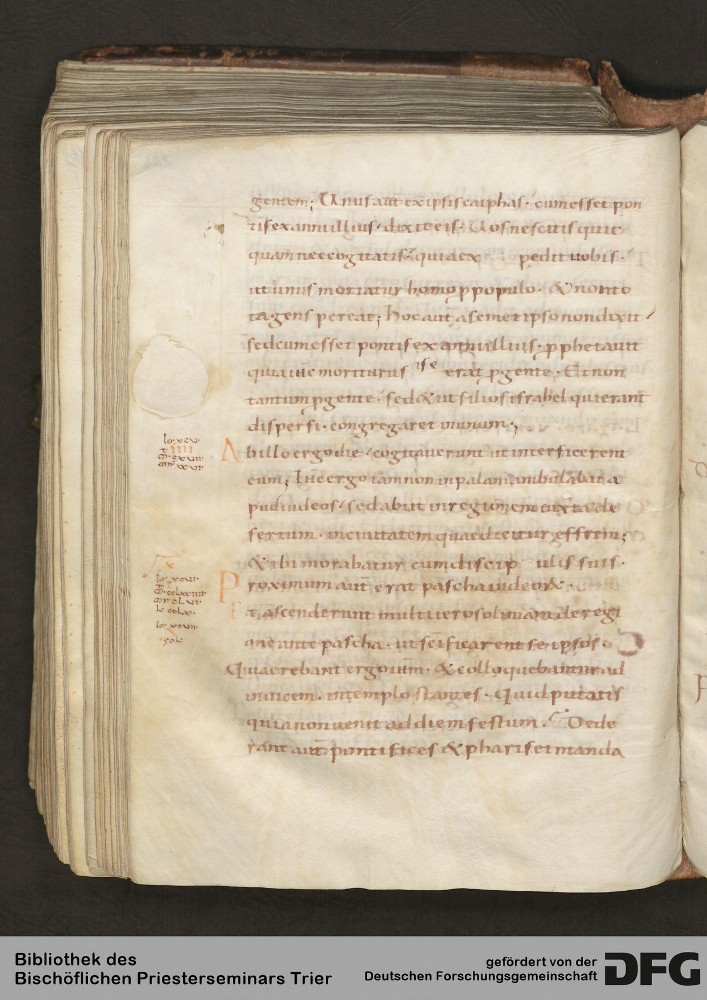 gentem; Unus aut̄ ex ipsis caiphas · cum esset pon
tifex anni illius · dixit eis · Uos nescitis quic
quam nec cogitatis · quia ex pedit uobis ·
ut unus moriatur homo p populo · & non to
ta gens pereat; hoc aut̄ a semet ipso non dixit
sed cum esset pontifex anni illius · p phetauit
quia ih̄c moriturus erat p gente · Et non
tantum p gente · sed & ut filios israhel qui erant
dispersi · congregaret in unum ;
Ab illo ergo die · cogitauerunt ut interficerent
eum; ih̄c ergo iam non in palam ambulabat a
pud iudeos · sed abiit in regionem iuxta de
sertum · in ciuitatem quae dicitur effrem;
& ibi morabatur cum discip ulis suis ·
Proximum aut̄ erat pascha iudeorx ·
Et ascenderunt multi ierosolimam de regi
one ante pascha · ut sc̄ificarent se ipsos ·
Quaerebant ergo ih̄m · & colloquebantur ad
inuicem · in templo stantes · Quid putatis
quia non uenit ad diem festum · Dede
rant aut̄ pontifices & pharisei manda
Bibliothek des
Bischöflichen Priesterseminars Trier
gefördert von der
Deutschen Forschungsgemeinschaft
DFG